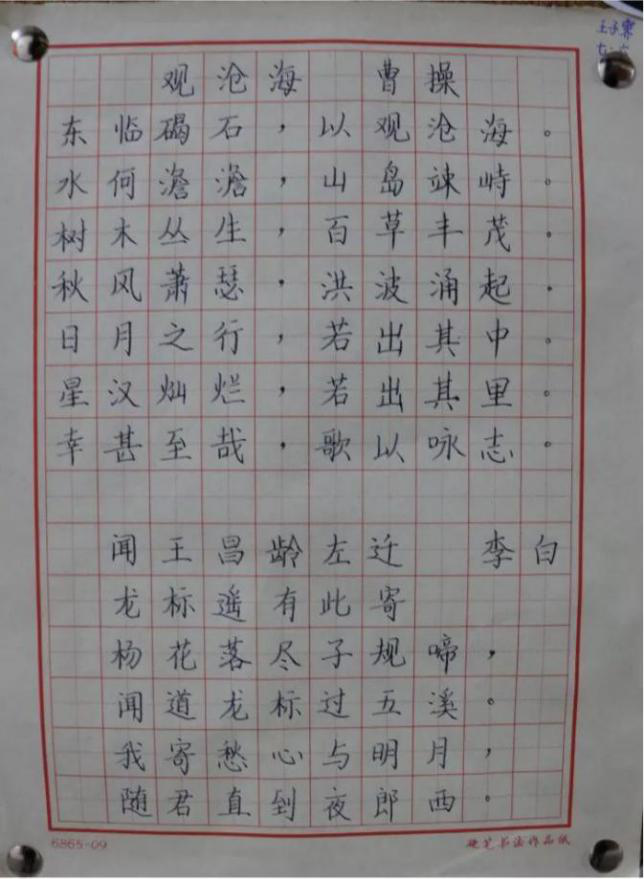 王子霖
观沧海 曹操
东临碣石，以观沧海。
水何澹澹，山岛竦峙。
树木丛生，百草丰茂。
秋风萧瑟，洪波涌起。
日月之行，若出其中。
星汉灿烂，若出其里。
幸甚至哉，歌以咏志。
闻王昌龄左迁 李白
龙标遥有此寄
杨花落尽子规啼，
闻道龙标过五溪。
我寄愁心与明月，
随君直到夜郎西。
6865-09 硬笔书法作品纸